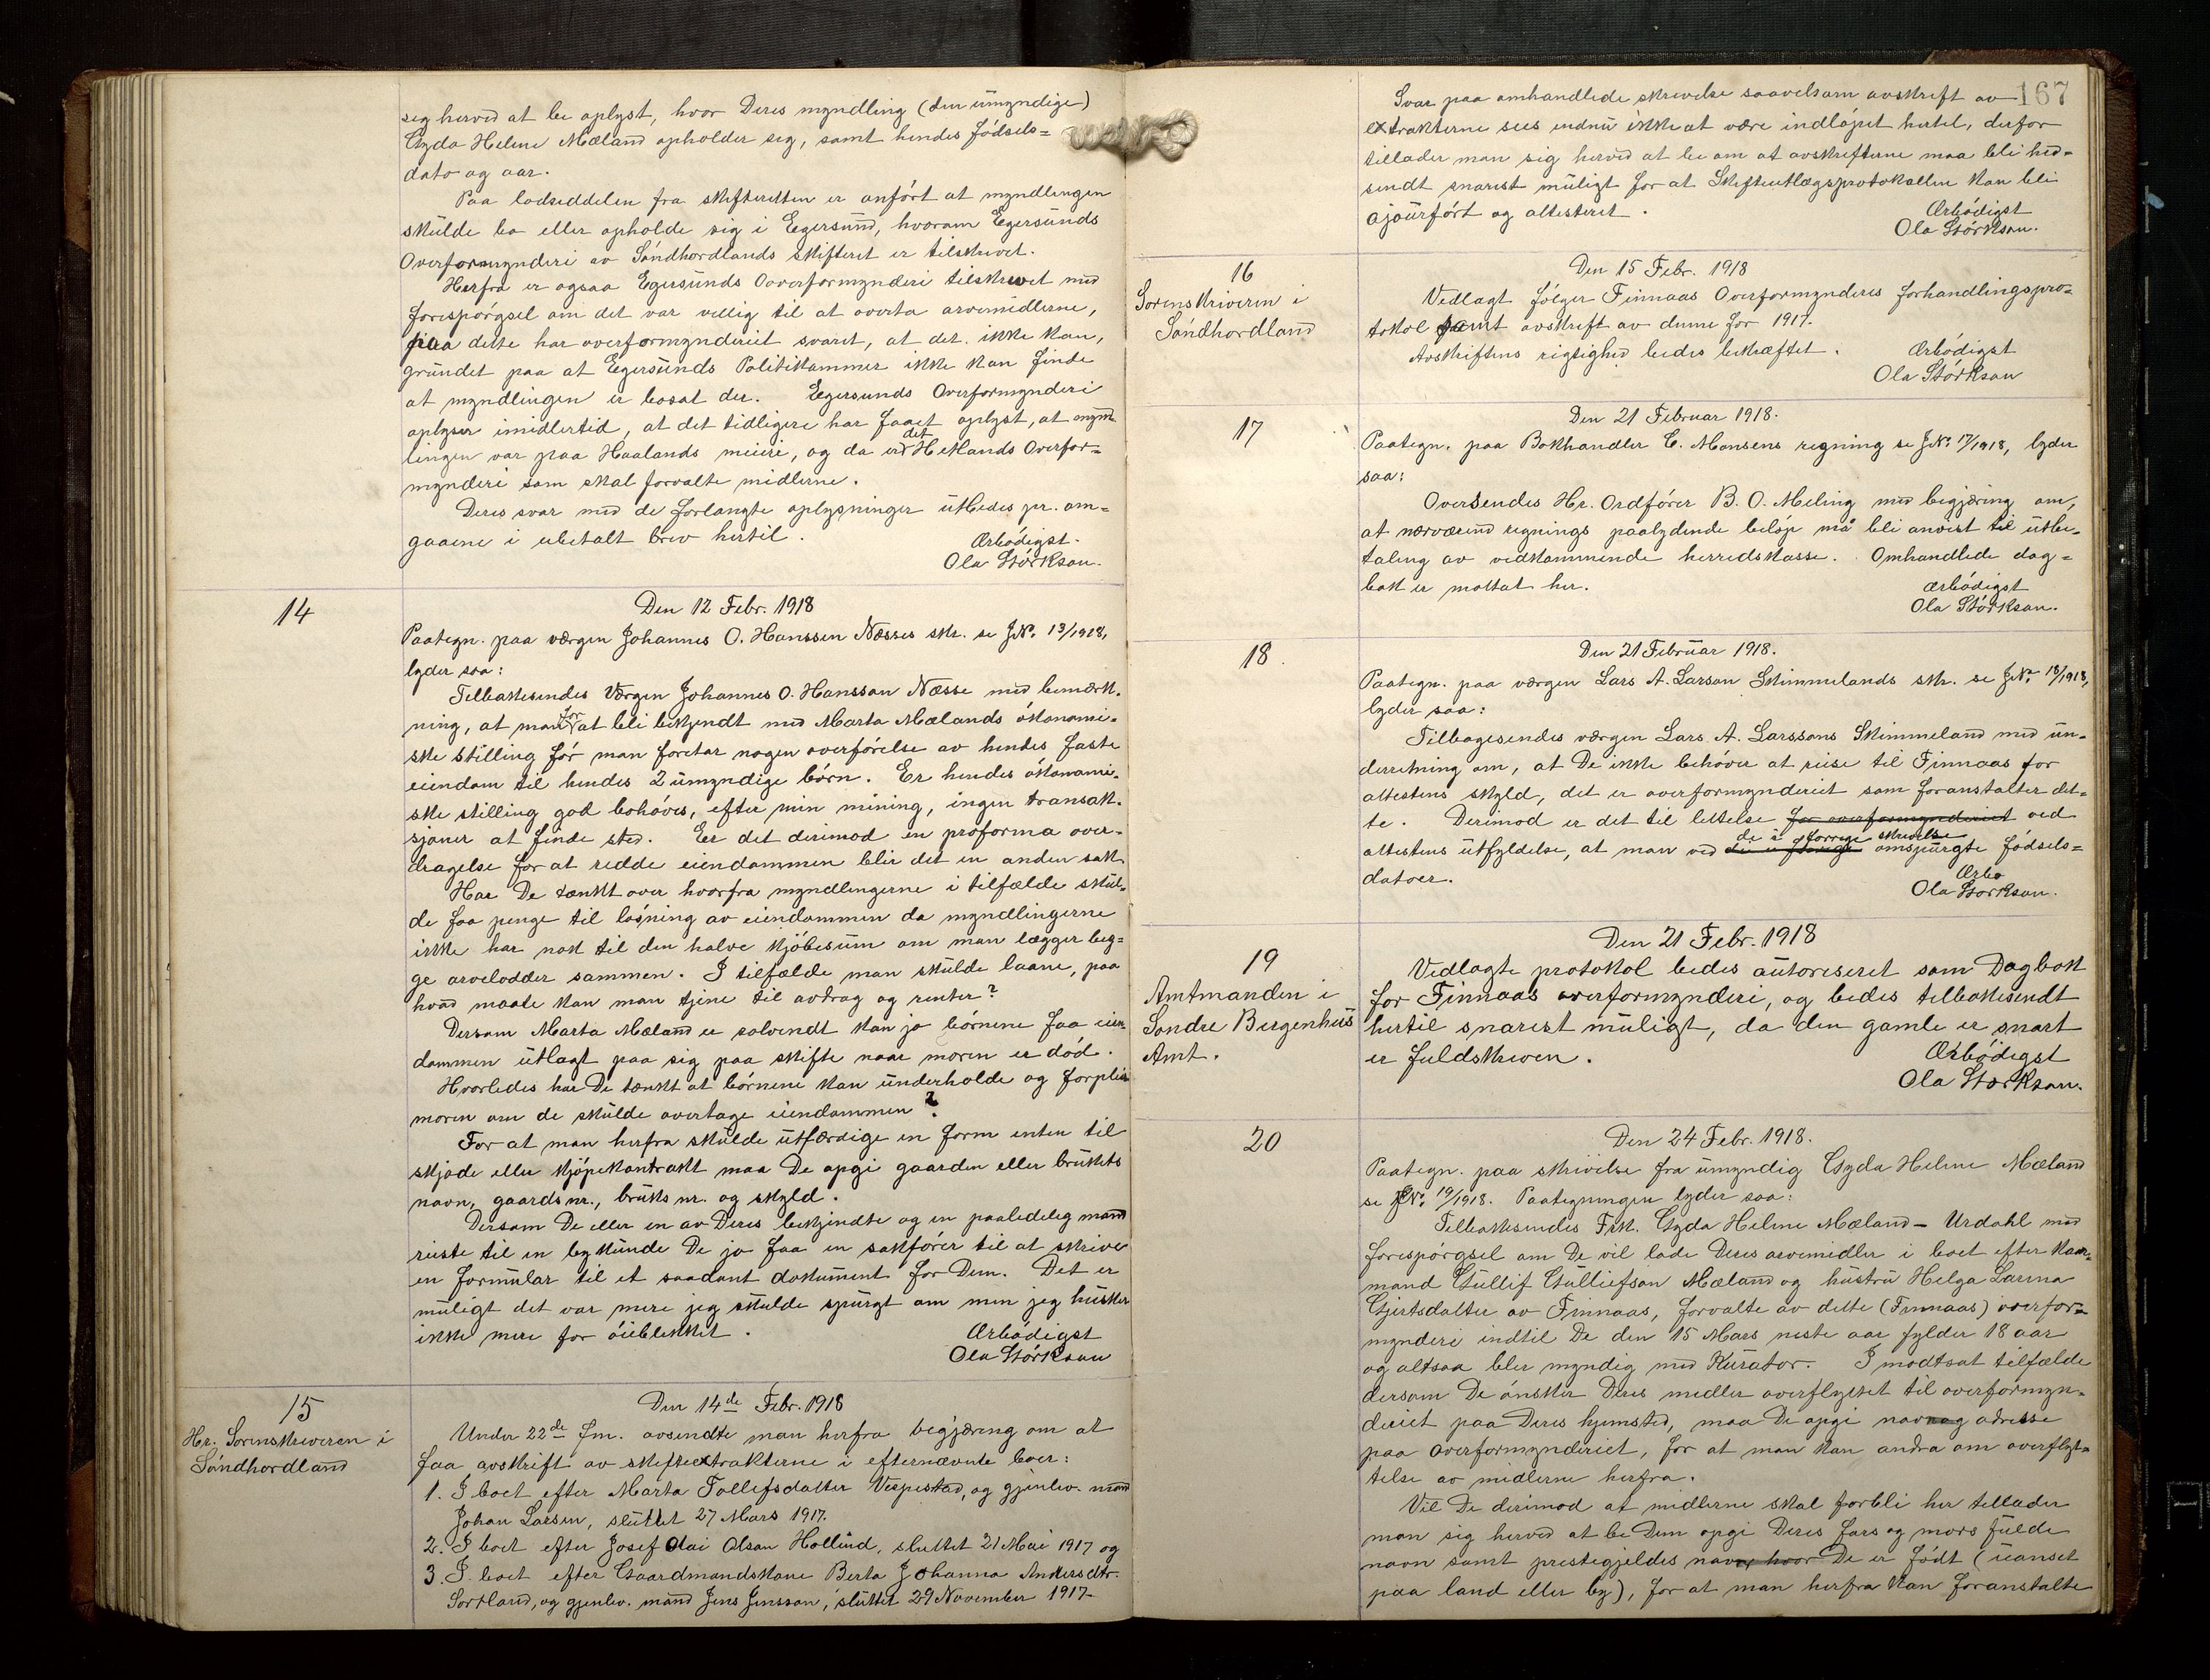 seg herved at be oplyst, hvor Deres myndling (den umyndige)
Gyda Helene Mæland opholder sig, samt hendes fødsels=
dato og aar.
Paa lodseddelen fra skifteretten er anført at myndlingen
skulde bo eller opholde sig i Egersund, hvorom Egersunds
Overformynderi av Søndhordlands skifteret er tilskrevet.
Herfra er ogsaa Egersunds Overformynderi tilskrevet med
forespørgsel om det var villig til at overta arvemidlerne,
paa dette har overformynderiet svaret, at det ikke kan,
grundet paa at Egersunds Politikammer ikke kan finde
at myndlingen er bosat der. Egersunds Overformynderi
oplyser imidlertid, at det tidligere har faaet oplyst, at mynd-
lingen var paa Haalands meieri, og da er det Hetlands Overfor=
mynderi som skal forvalte midlerne.
Deres svar med de forlangte oplysninger utbedes pr. om=
gaaene i ubetalt brev hertil.
Ærbødigst
Ola Størkson.
14
Den 12 Febr. 1918
Paategn. paa værgen Johannes O. Hanssen Næsses skr. se J.No. 13/1918,
lyder saa:
Tilbakesendes Værgen Johannes O. Hansson Næsse med bemærk-
ning, at man for at bli bekjendt med Marta Mælands økonomi-
ske stilling før man foretar nogen overførelse av hendes faste
eiendom til hendes 2 umyndige børn. Er hendes økonomi-
ske stilling god behøves, efter min mening, ingen transak-
sjoner at finde sted. Er det derimod en proforma over-
dragelse for at redde eiendommen blir det en anden sak.
Har De tænkt over hvorfra myndlingerne i tilfælde skul-
de faa penge til løsning av eiendommen da myndlingerne
ikke har nok til den halve kjøbesum om man lægger beg=
ge arvelodder sammen. I tilfælde man skulde laane, paa
hvad maate kan man tjene til avdrag og renter?
Dersom Marta Mæland er solvendt kan jo børnene faa eien-
dommen utlagt paa sig paa skifte naar moren er død.
Hvorledes har De tænkt at børnene kan underholde og forpleie
moren om de skulde overtage eiendommen?
For at man herfra skulde utfærdige en form enten til
skjøde eller kjøpekontrakt maa De opgi gaarden eller brukets
navn, gaardsnr., bruksnr. og skyld.
Dersom De eller en av Deres bekjendte og en paalidelig mand
reiste til en by kunde De jo faa en sakfører til at skrive
en formular til et saadant dokument for Dem. Det er
muligt det var mere jeg skulde spurgt om men jeg husker
ikke mere for øieblikket.
Ærbødigst
Ola Størkson
15
Hr. Sorenskriveren i
Søndhordland
Den 14de Febr. 1918
Under 22de f.m. avsendte man herfra begjæring om at
faa avskrift av skifteextrakterne i efternævnte boer:
1. I boet efter Marta Tollefsdatter Vespestad, og gjenlev. mand
Johan Larsen, sluttet 27 Mars 1917.
2. I boet efter Josef Olai Olson Hollund, sluttet 21 Mai 1917 og
3. I boet efter Gaardmandskone Berta Johanna Andersdtr.
Sortland, og gjenlev. mand Jens Jensson, sluttet 29 November 1917.
167
Svar paa omhandlede skrivelse saavelsom avskrift av
extrakterne sees endnu ikke at være indløpet hertil, derfor
tillader man sig herved at be om at avskrifterne maa bli hid=
sendt snarest muligt for at Skifteutlægsprotokollen kan bli
ajourført og attesteret.
Ærbødigst
Ola Størkson.
16
Sorenskriveren i
Søndhordland
Den 15 Febr. 1918
Vedlagt følger Finnaas Overformynderis forhandlingspro=
tokol samt avskrift av denne for 1917.
Avskriftens rigtighed bedes bekræftet.
Ærbødigst
Ola Størkson
17
Den 21 Februar 1918.
Paategn. paa Bokhandler C. Monsens regning se J.No. 17/1918, lyder
saa:
Oversendes Hr. Ordfører B. O. Meling med begjæring om,
at nærværend regnings paalydende beløp må bli anvist til utbe-
taling av vedkommende herredskasse. Omhandlede dag=
bok er mottat her.
ærbødigst
Ola Størkson.
18
Den 21 Februar 1918.
Paategn. paa værgen Lars A. Larson Skimmelands skr. se J.No. 18/1918,
lyder saa:
Tilbagesendes værgen Lars A. Larssons Skimmeland med un-
derretning om, at De ikke behøver at reise til Finnaas for
attestens skyld, det er overformynderiet som foranstalter det-
te. Derimod er det til lettelse for overformynderiet ved
attestens utfyldelse, at man ved de i forrige skrivelse omspurgte fødsels=
datoer.
Ærbø
Ola Størkson.
19
Amtmanden i
Søndre Bergenhus
Amt.
Den 21 Febr. 1918
Vedlagte protokol bedes autoriseret som Dagbok
for Finnaas overformynderi, og bedes tilbakesendt
hertil snarest muligt, da den gamle er snart
er fuldskreven.
Ærbødigst
Ola Størkson.
20
Den 24 Febr. 1918.
Paategn. paa skrivelse fra umyndig Gyda Helene Mæland
se J.No. 19/1918. Paategningen lyder saa:
Tilbakesendes Frk. Gyda Helene Mæland - Urdahl med
forespørgsel om De vil lade Deres arvemidler i boet efter kaar-
mand Gullif Gulliefson Mæland og hustru Helga Larina
Gjertsdatter av Finnaas, forvalte av dette (Finnaas) overfor=
mynderi indtil De den 15 Mars neste aar fylder 18 aar
og altsaa bler myndig med Kurator. I modtsat tilfælde
dersom De ønsker Deres midler overflyttet til overformyn-
deriet paa Deres hjemsted, maa De opgi navn og adresse
paa overformynderiet, for at man kan andra om overflyt=
telse av midlerne herfra.
Vil De derimod at midlerne skal forbli her tillader
man sig herved at be Dem opgi Deres fars og mors fulde
navn samt prestegjeldes navn hvor De er født (uanset
paa land eller by), for at man herfra kan foranstalte